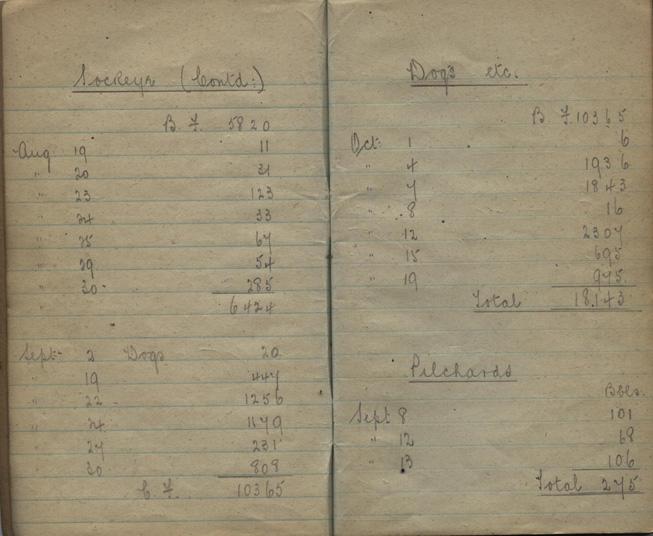 Sockeye (Contd:)
B F. 5820
Aug 19 11
" 20 31
" 23 123
" 24 33
" 25 67
" 29 54
" 30 285
6424
Sept 2 Dogs 20
" 19 447
" 22 1256
" 24 1179
" 27 231
" 30 808
C F. 10365
Dogs etc.
B F. 10365
Oct: 1 6
" 4 1936
" 7 1843
" 8 16
" 12 2307
" 15 695
" 19 975
Total 18.143
Pilchards
Bbls.
Sept 8 101
" 12 68
" 13 106
Total 275